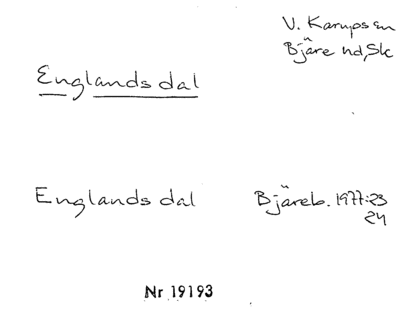 V. Karups sn
Bjäre hd, Sk
Englandsdal
Englandsdal Bjäreb. 1977:23
24
Nr 19193